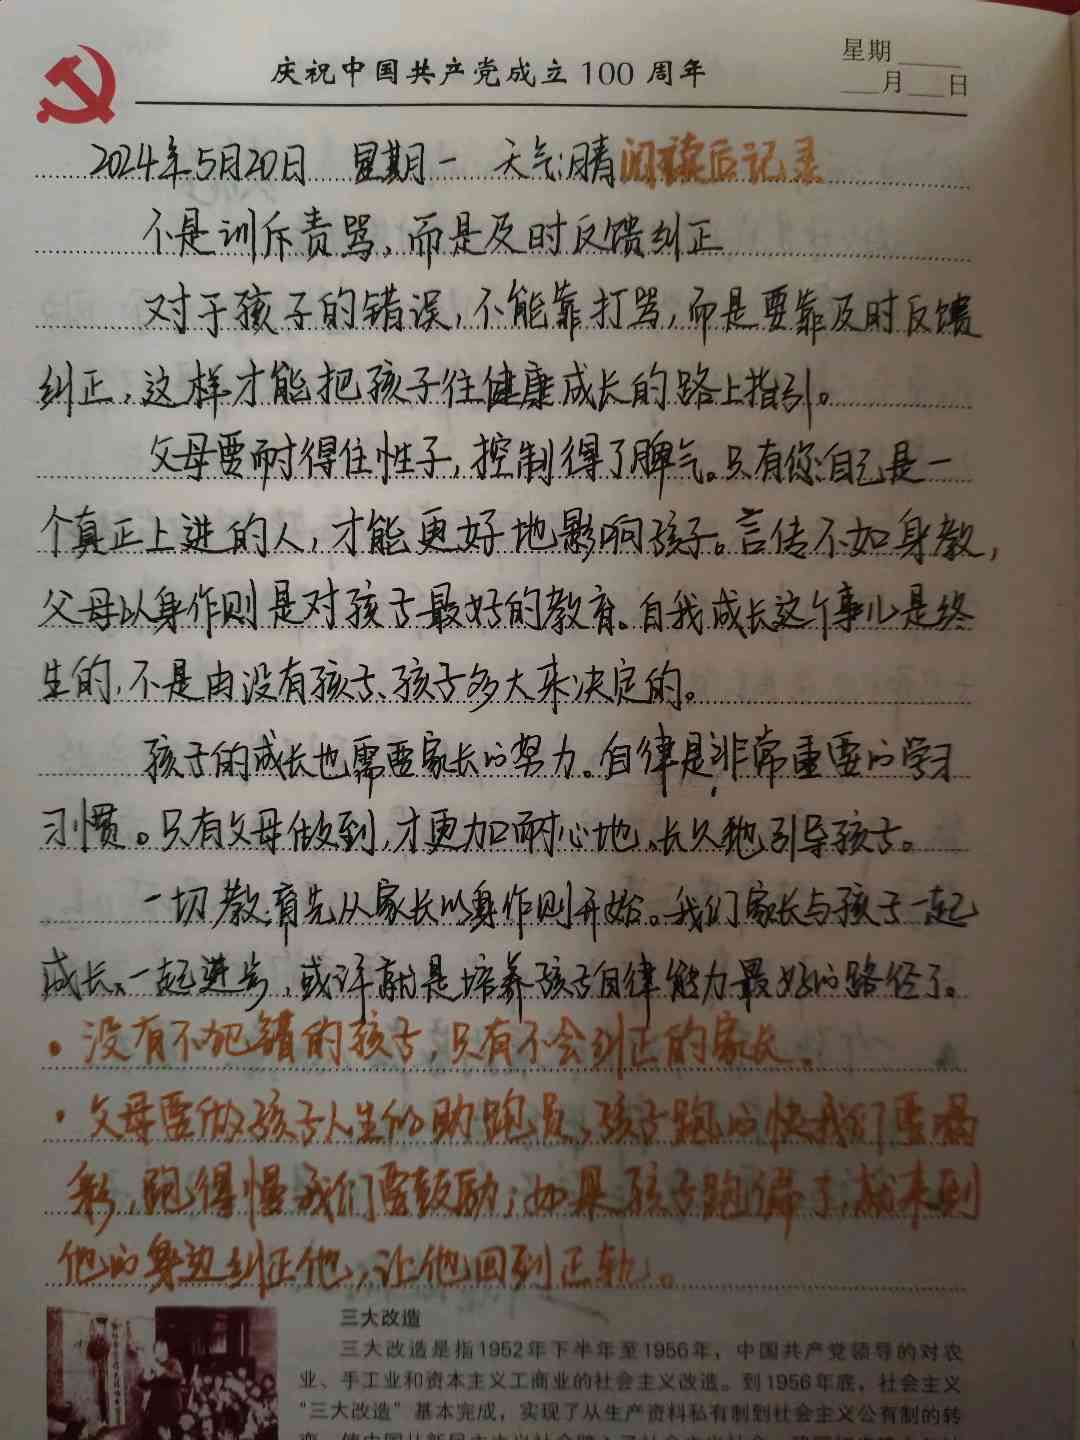 庆祝中国共产党成立 100 周年
星期
月 日
2024年5月20日 星期一 天气:晴 阅读后记录
不是训斥责骂,而是及时反馈纠正
对于孩子的错误,不能靠打骂,而是要靠及时反馈
纠正,这样才能把孩子往健康成长的路上指引。
父母要耐得住性子,控制得了脾气。只有您自己是一
个真正上进的人,才能更好地影响孩子。言传不如身教,
父母以身作则是对孩子最好的教育。自我成长这个事儿是终
生的,不是由没有孩子、孩子多大来决定的。
孩子的成长也需要家长的努力。自律是非常重要的学习
习惯。只有父母做到,才更加耐心地、长久地引导孩子。
一切教育先从家长以身作则开始。我们家长与孩子一起
成长、一起进步,或许就是培养孩子自律能力最好的路径了。
• 没有不犯错的孩子,只有不会纠正的家长。
• 父母要做孩子人生的助跑员,孩子跑的快我们要喝
彩,跑得慢我们要鼓励;如果孩子跑偏了,就来到
他的身边纠正他,让他回到正轨。
三大改造
三大改造是指1952年下半年至1956年,中国共产党领导的对农
业、手工业和资本主义工商业的社会主义改造。到1956年底,社会主义
“三大改造”基本完成,实现了从生产资料私有制到社会主义公有制的转